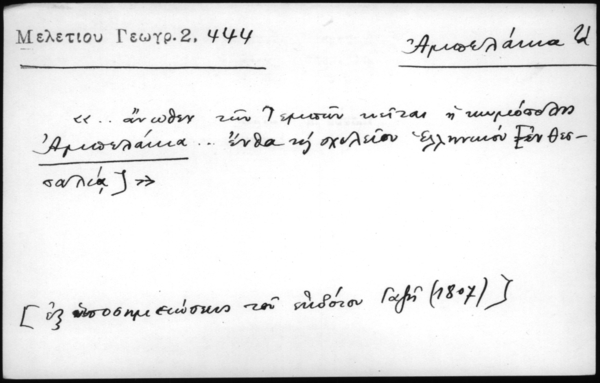 Μελετίου Γεωγρ. 2, 444
Ἀμπελάκια
«.. ἄνωθεν τῶν Τεμπῶν κεῖται ἡ κωμόπολις
Ἀμπελάκια .. ἔνθα καὶ σχολεῖον Ἑλληνικόν [ἐν Θεσ-
σαλίᾳ] »
[ἐξ ὑποσημειώσεως τοῦ ἐκδότου Γαζῆ (1807)]